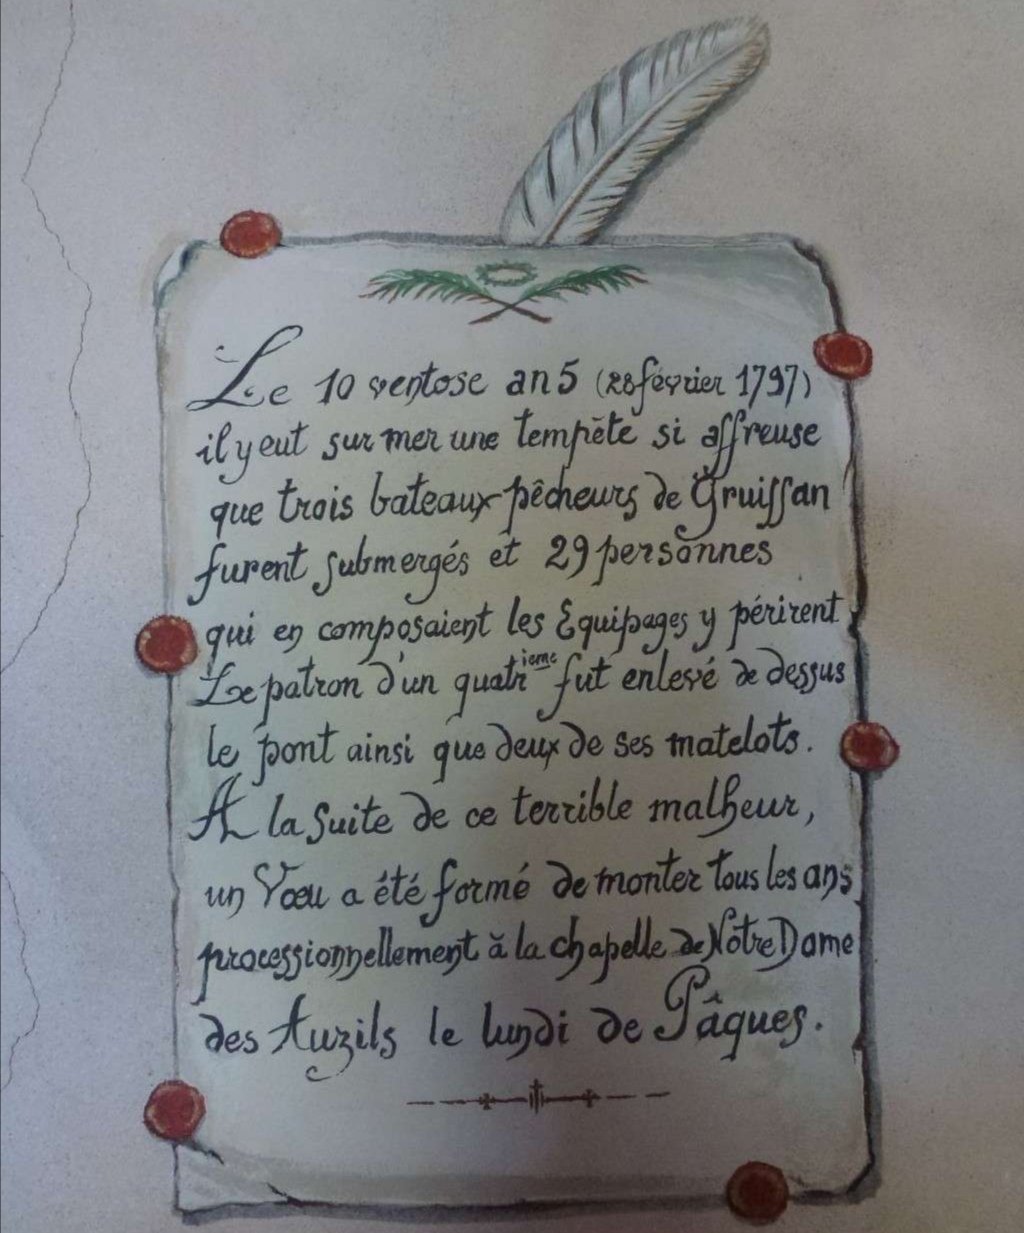 Le 10 ventose an 5 (28 février 1797)
il y eut sur mer une tempête si affreuse
que trois bateaux pêcheurs de Gruissan
furent submergés et 29 personnes
qui en composaient les Equipages y périrent
Le patron d'un quatrieme fut enlevé de dessus
le pont ainsi que deux de ses matelots.
A la suite de ce terrible malheur,
un Vœu a été formé de monter tous les ans
processionnellement à la chapelle de Notre Dame
des Auzils le lundi de Pâques.